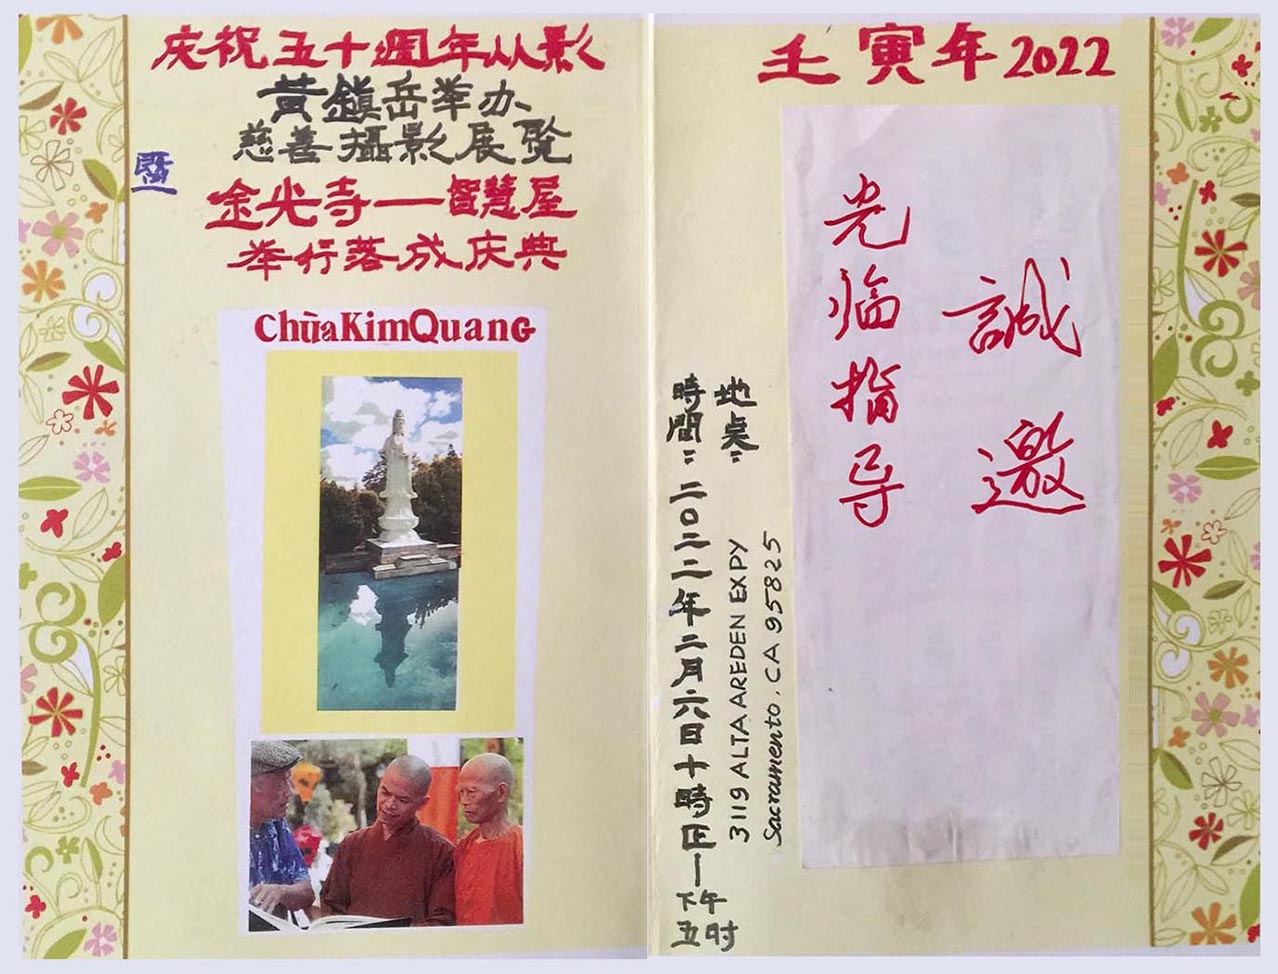 庆祝五十週年从影
黃鎮岳举办
慈善攝影展覧
暨
金光寺一智慧屋
举行落成庆典
ChùaKimQuang
壬寅年2022
誠邀
光临指导
地奌:
3119 ALTA AREDEN EXPY
Sacramento, CA 95825
時間:二〇二二年二月六日十時正一下午五时